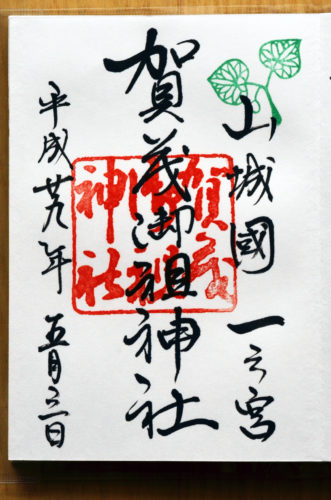 山城國 一之宮
賀茂御祖神社
賀茂御祖神社
平成廿九年 五月三日